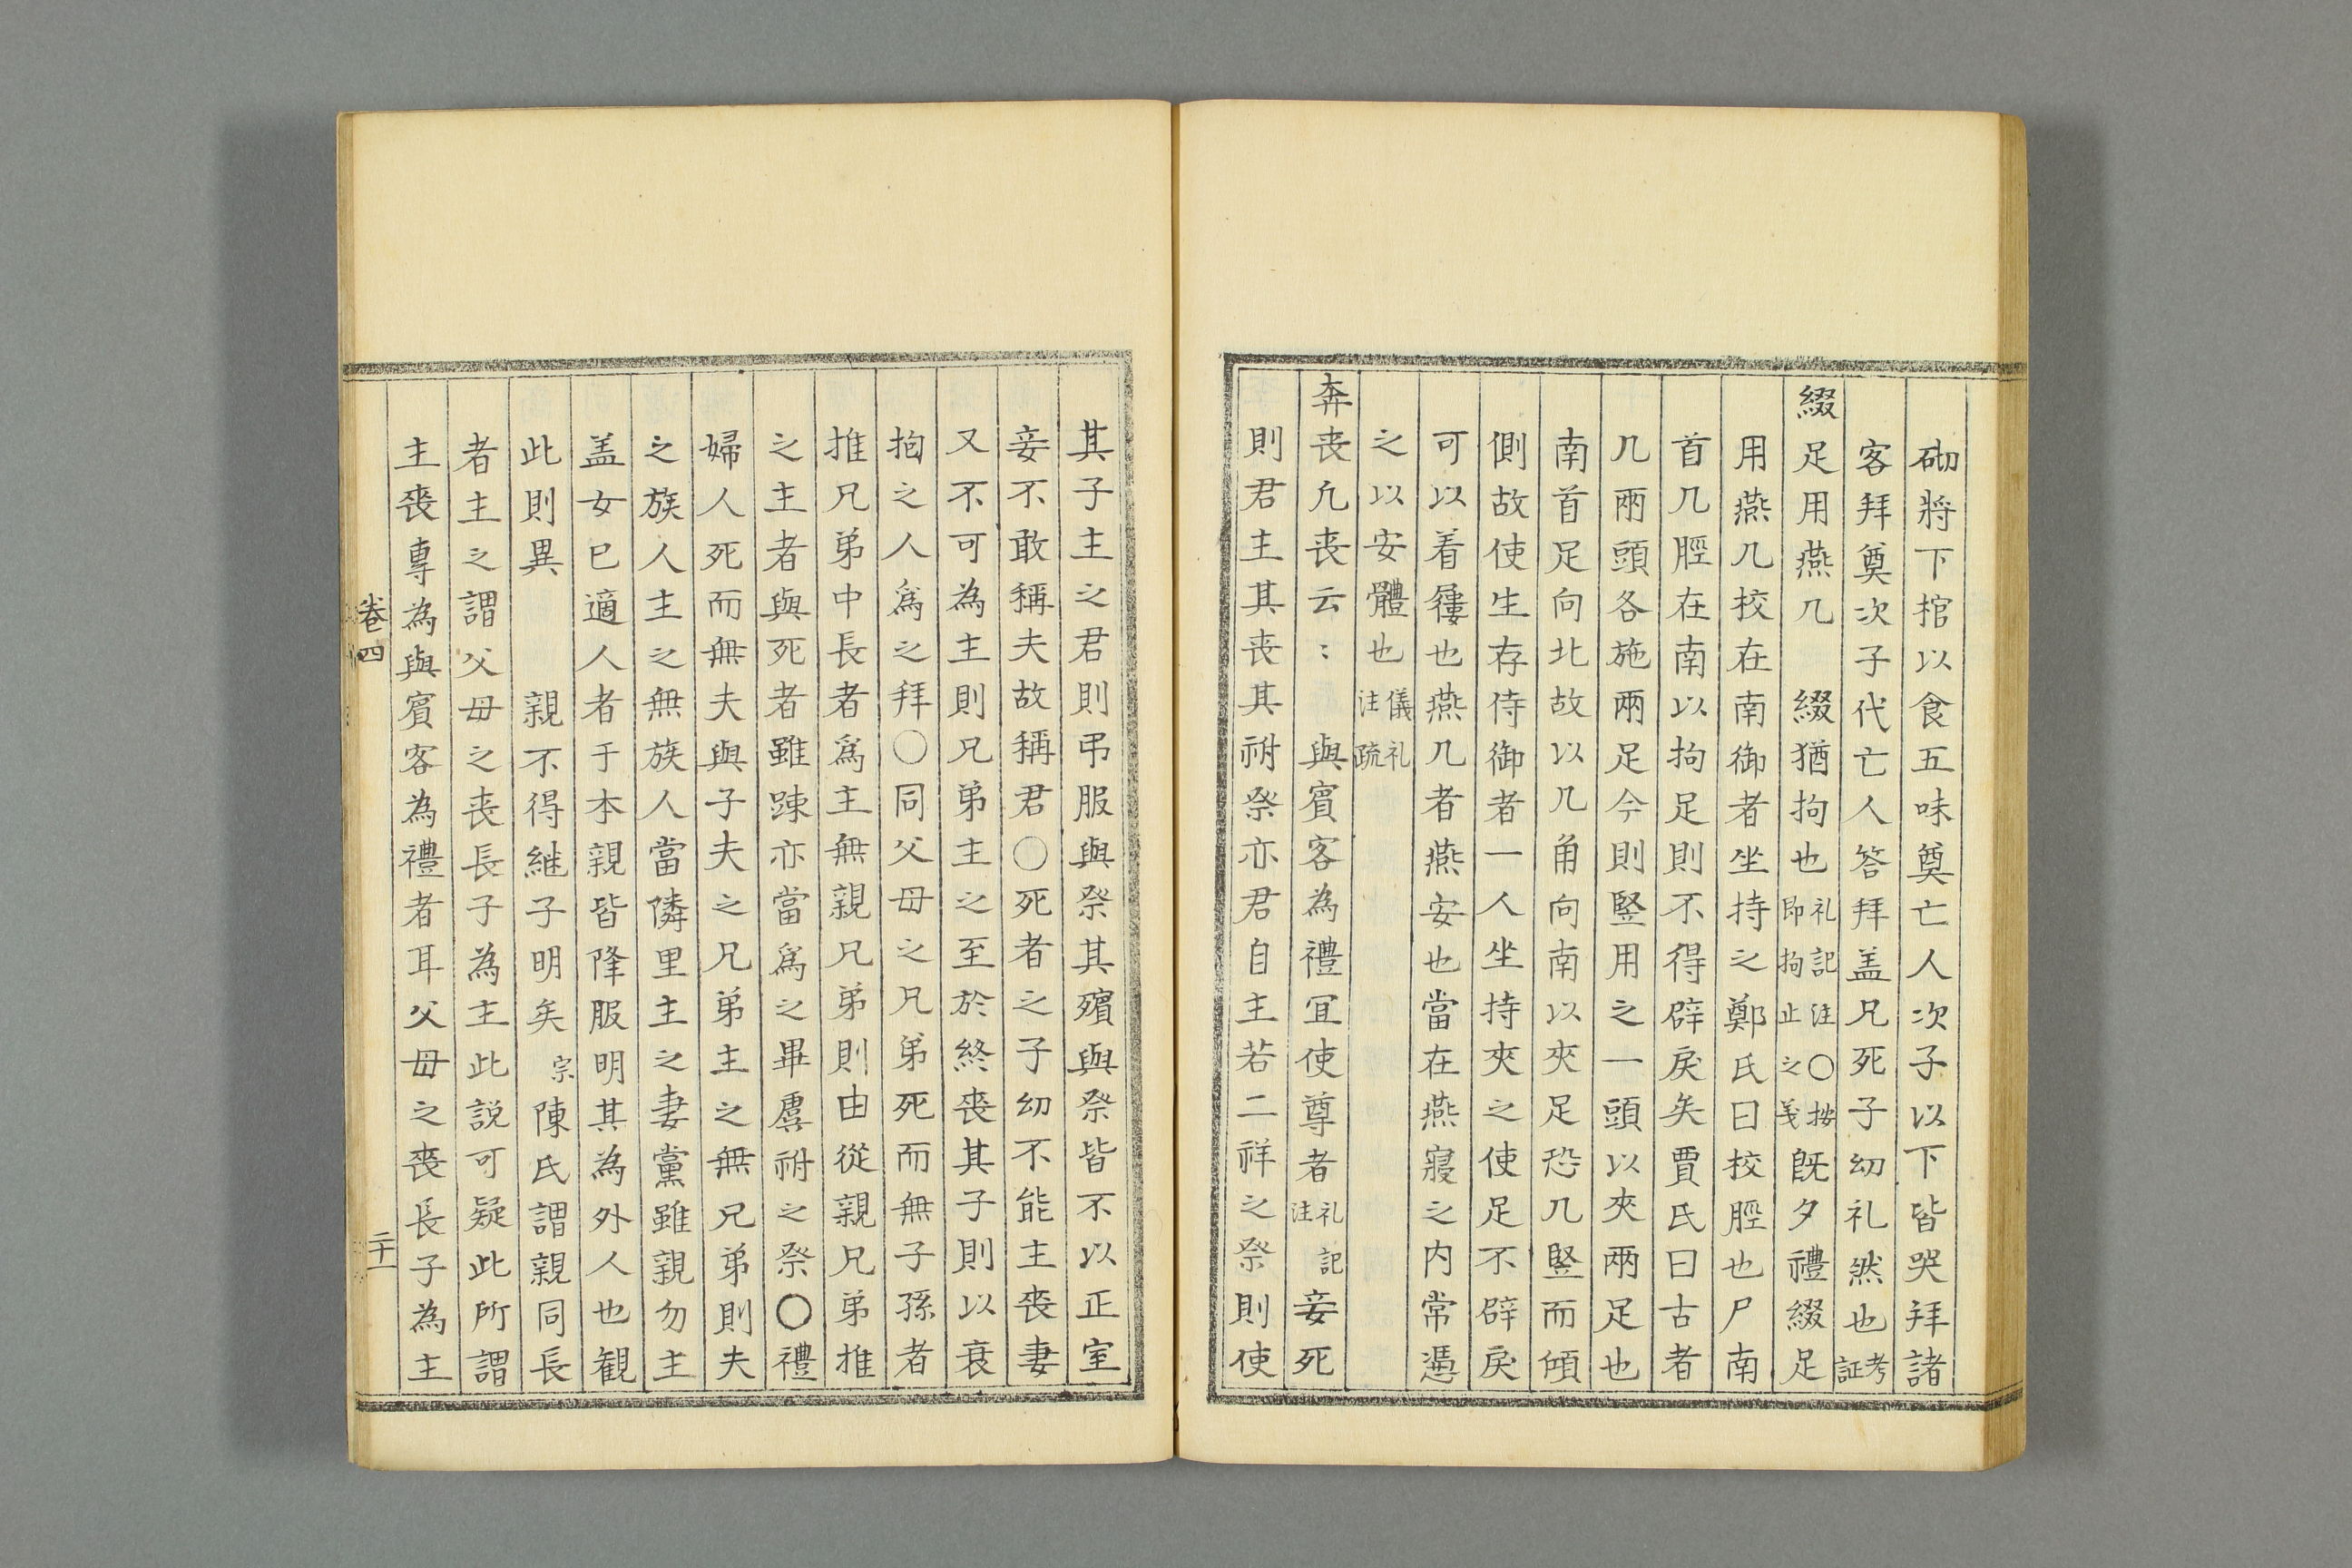 砌將下棺以食五味奠亡人次子以下皆哭拜諸
客拜奠次子代亡人答拜盖兄死子幼礼然也考証
綴足用燕几　綴猶拘也礼記注〇按即拘止之義既夕禮綴足
用燕几校在南御者坐持之鄭氏曰校脛也尸南
首几脛在南以拘足則不得辟戾矣賈氏曰古者
几兩頭各施兩足今則竪用之一頭以夾兩足也
南首足向北故以几角向南以夾足恐几竪而傾
側故使生存侍御者一人坐持夾之使足不辟戾
可以着屨也燕几者燕安也當在燕寢之内常憑
之以安體也儀礼注疏
奔丧凢丧云〻　與賓客為禮冝使尊者礼記注妾死
則君主其丧其祔祭亦君自主若二祥之祭則使
其子主之君則弔服與祭其殯與祭皆不以正室
妾不敢稱夫故稱君〇死者之子幼不能主喪妻
又不可為主則兄弟主之至於終喪其子則以衰
抱之人爲之拜〇同父母之兄弟死而無子孫者
推兄弟中長者爲主無親兄弟則由從親兄弟推
之主者與死者雖踈亦當爲之畢虞祔之祭〇禮
婦人死而無夫與子夫之兄弟主之無兄弟則夫
之族人主之無族人當隣里主之妻黨雖親勿主
盖女已適人者于本親皆降服明其為外人也観
此則異　親不得継子明矣宗陳氏謂親同長
者主之謂父母之丧長子為主此説可疑此所謂
主喪專為與賓客為禮者耳父母之喪長子為主
卷四
二十